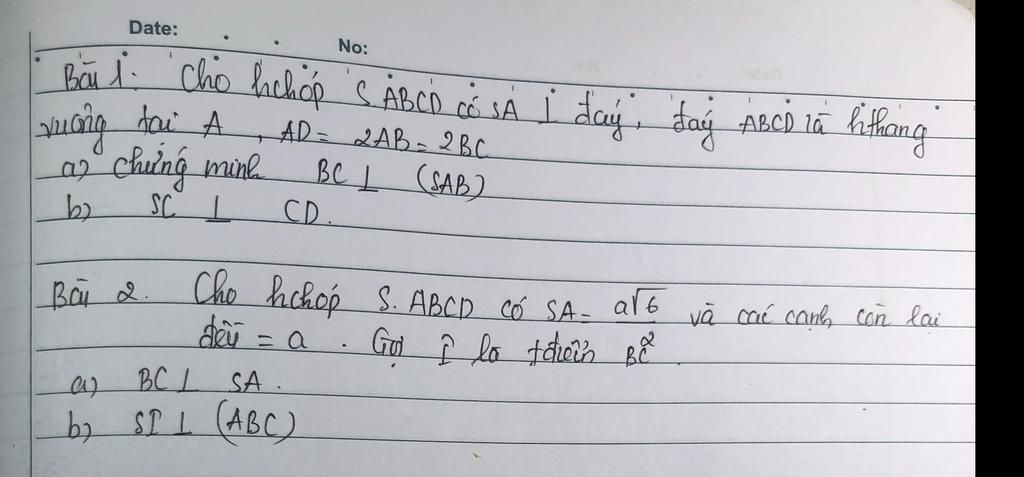 Date:
No:
Bài 1. Cho hchóp S ABCD có SA ⊥ đáy, đáy ABCD là hthang
vuông tại A, AD = 2AB = 2BC
a) chứng minh BC ⊥ (SAB)
b) SC ⊥ CD.
Bài 2. Cho hchóp S. ABCD có SA = a√6/2 và các cạnh còn lại
đều = a. Gọi I là tđiểm BC.
a) BC ⊥ SA.
b) SI ⊥ (ABC)